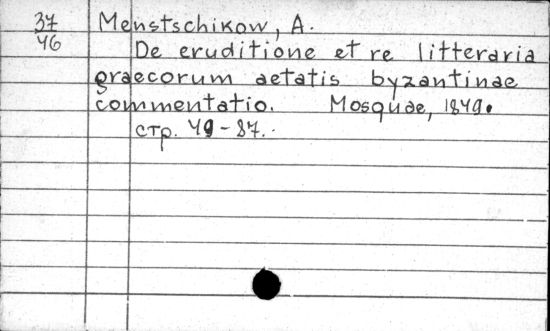 37 Menstschikow, A.
46 De eruditione et re litteraria
graecorum aetatis byzantinae
commentatio. Mosquae, 1849.
стр. 49-87.